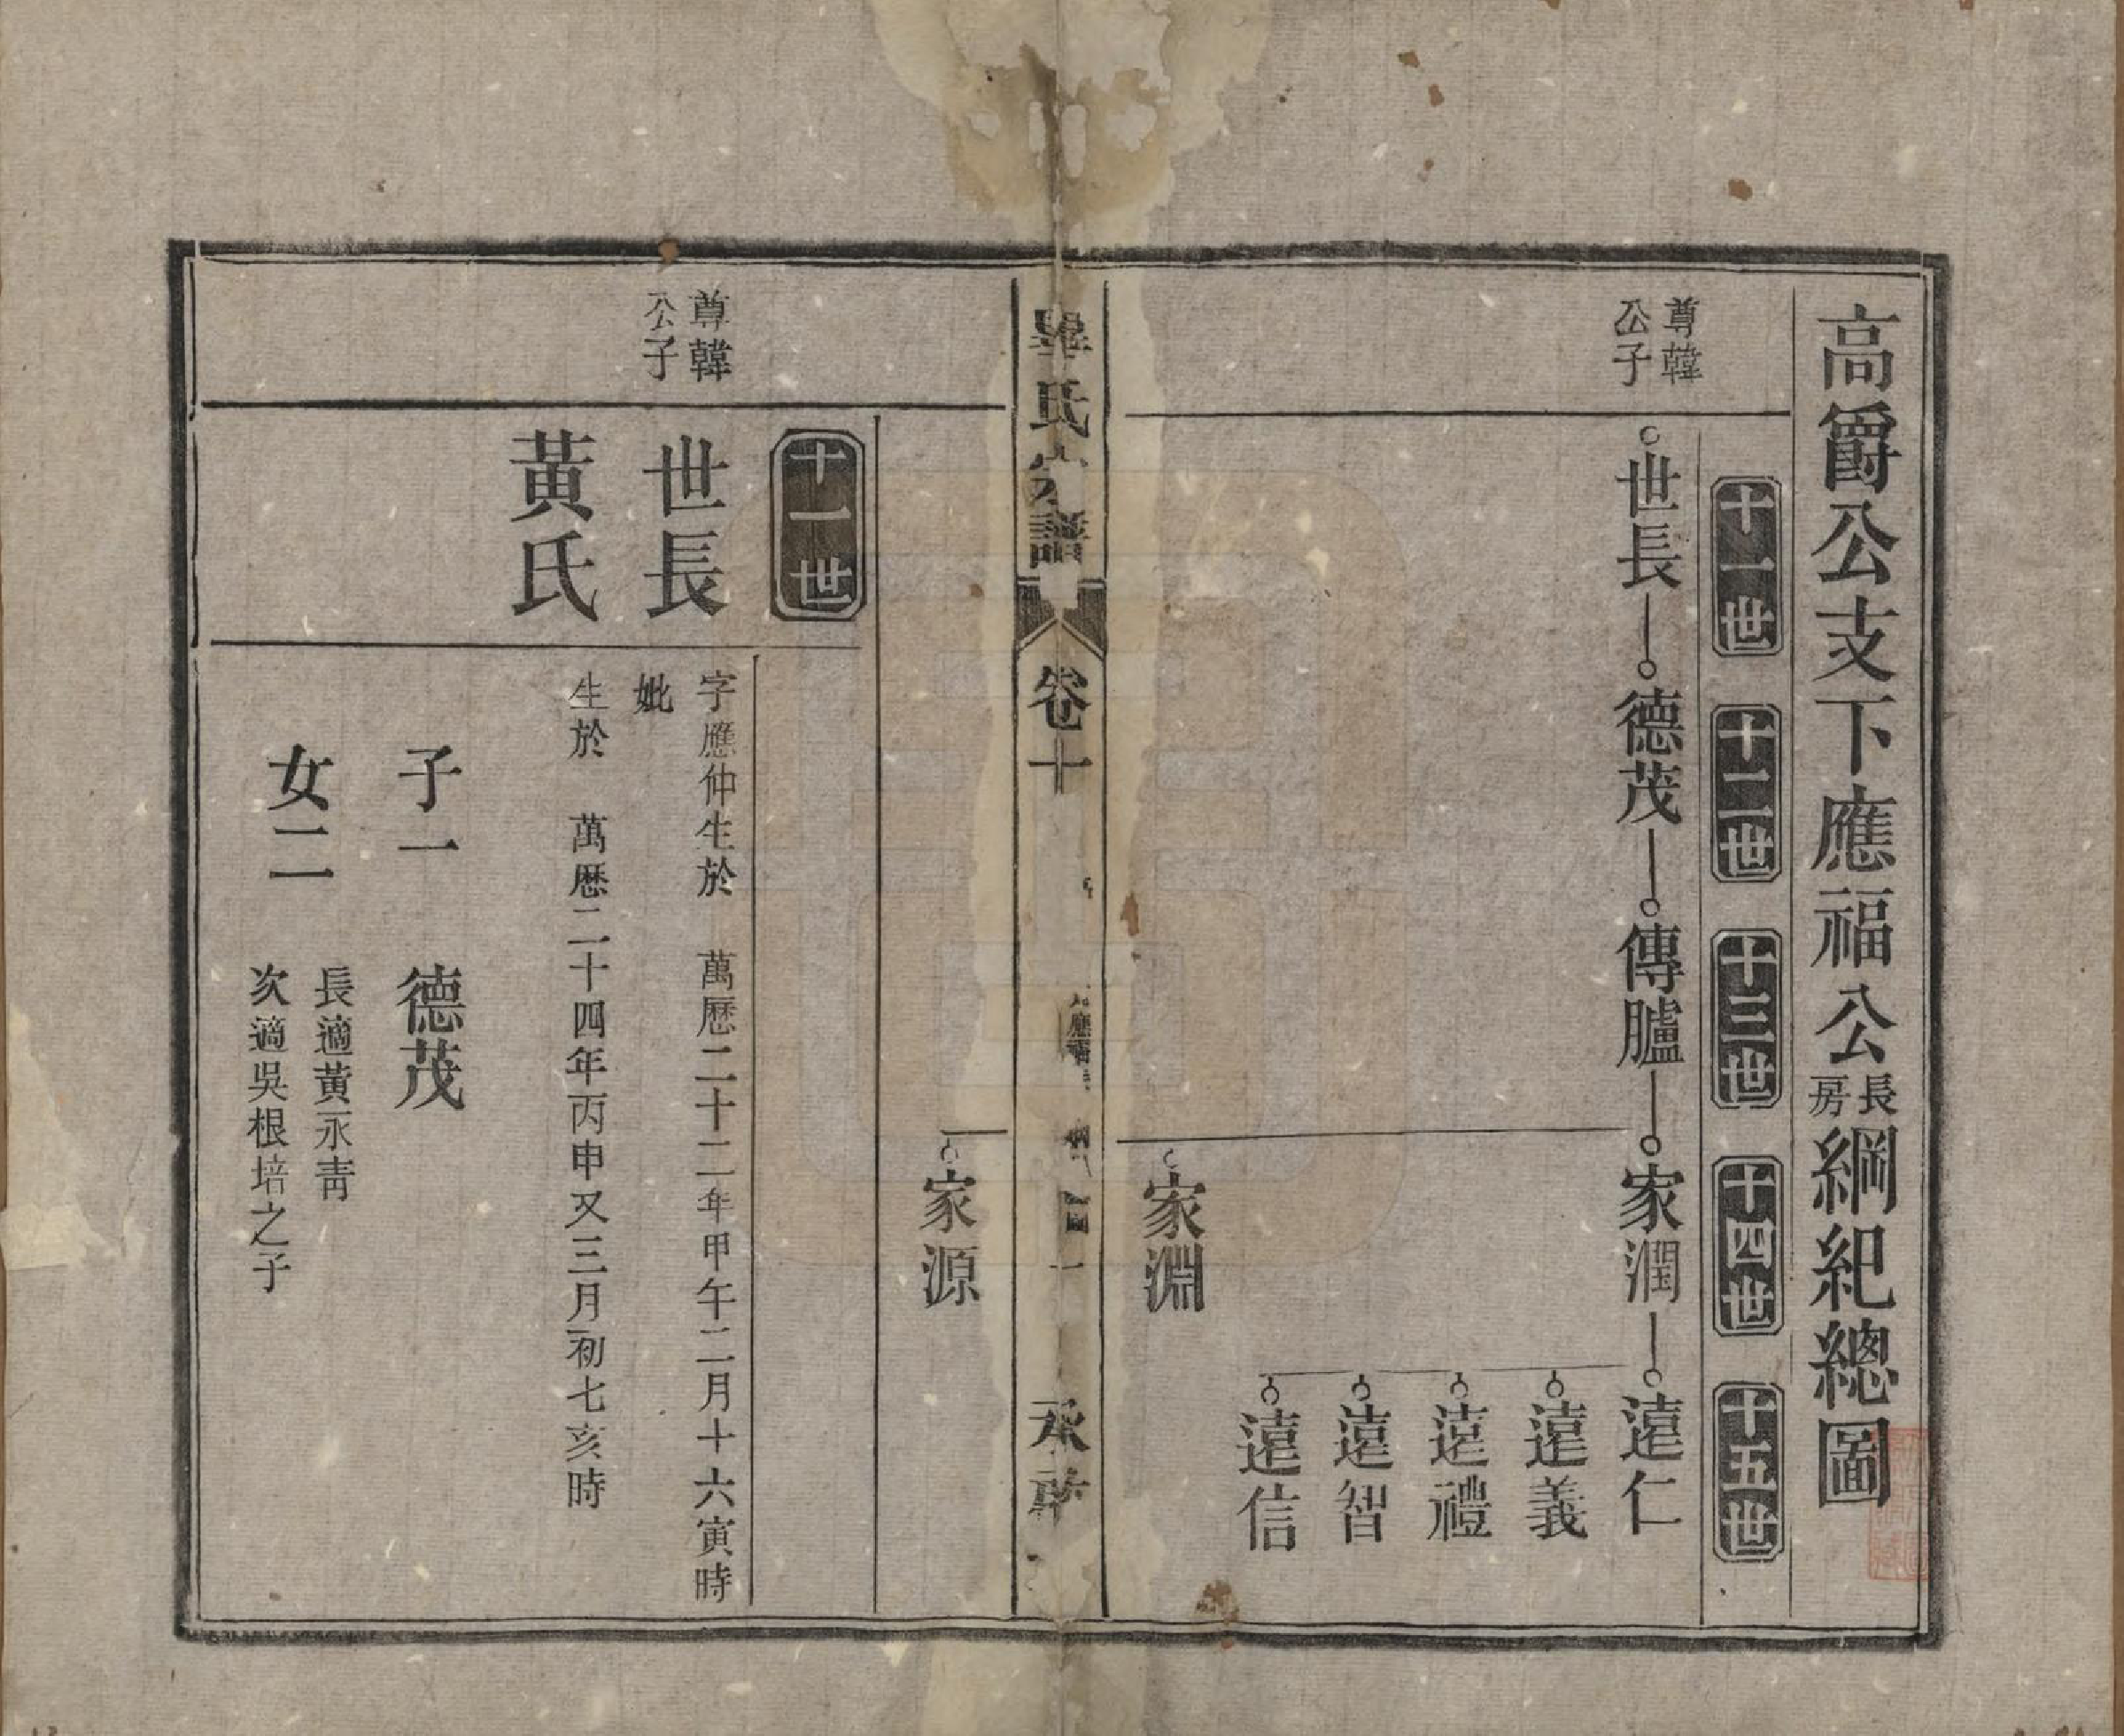 高爵公支下應福公長房綱紀總圖
十一世
十二世
十三世
十四世
十五世
尊韓
公子
世長
德茂
傳臚
家潤
遠仁
遠義
遠禮
遠智
遠信
家淵
畢氏宗譜
卷十
一
承啟
家源
十一世
尊韓
公子
世長
字應仲生於 萬歷二十二年甲午二月十六寅時
妣
黃氏
生於 萬歷二十四年丙申又三月初七亥時
子一 德茂
女二
長適黃永青
次適吳根培之子